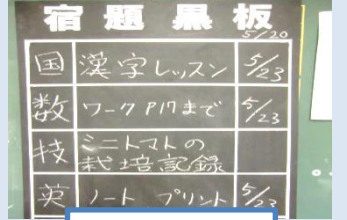 宿題黒板
5/20
国 漢字レッスン 5/23
数 ワークP17まで 5/23
技 ミニトマトの
栽培記録
英 ノート プリント 5/23